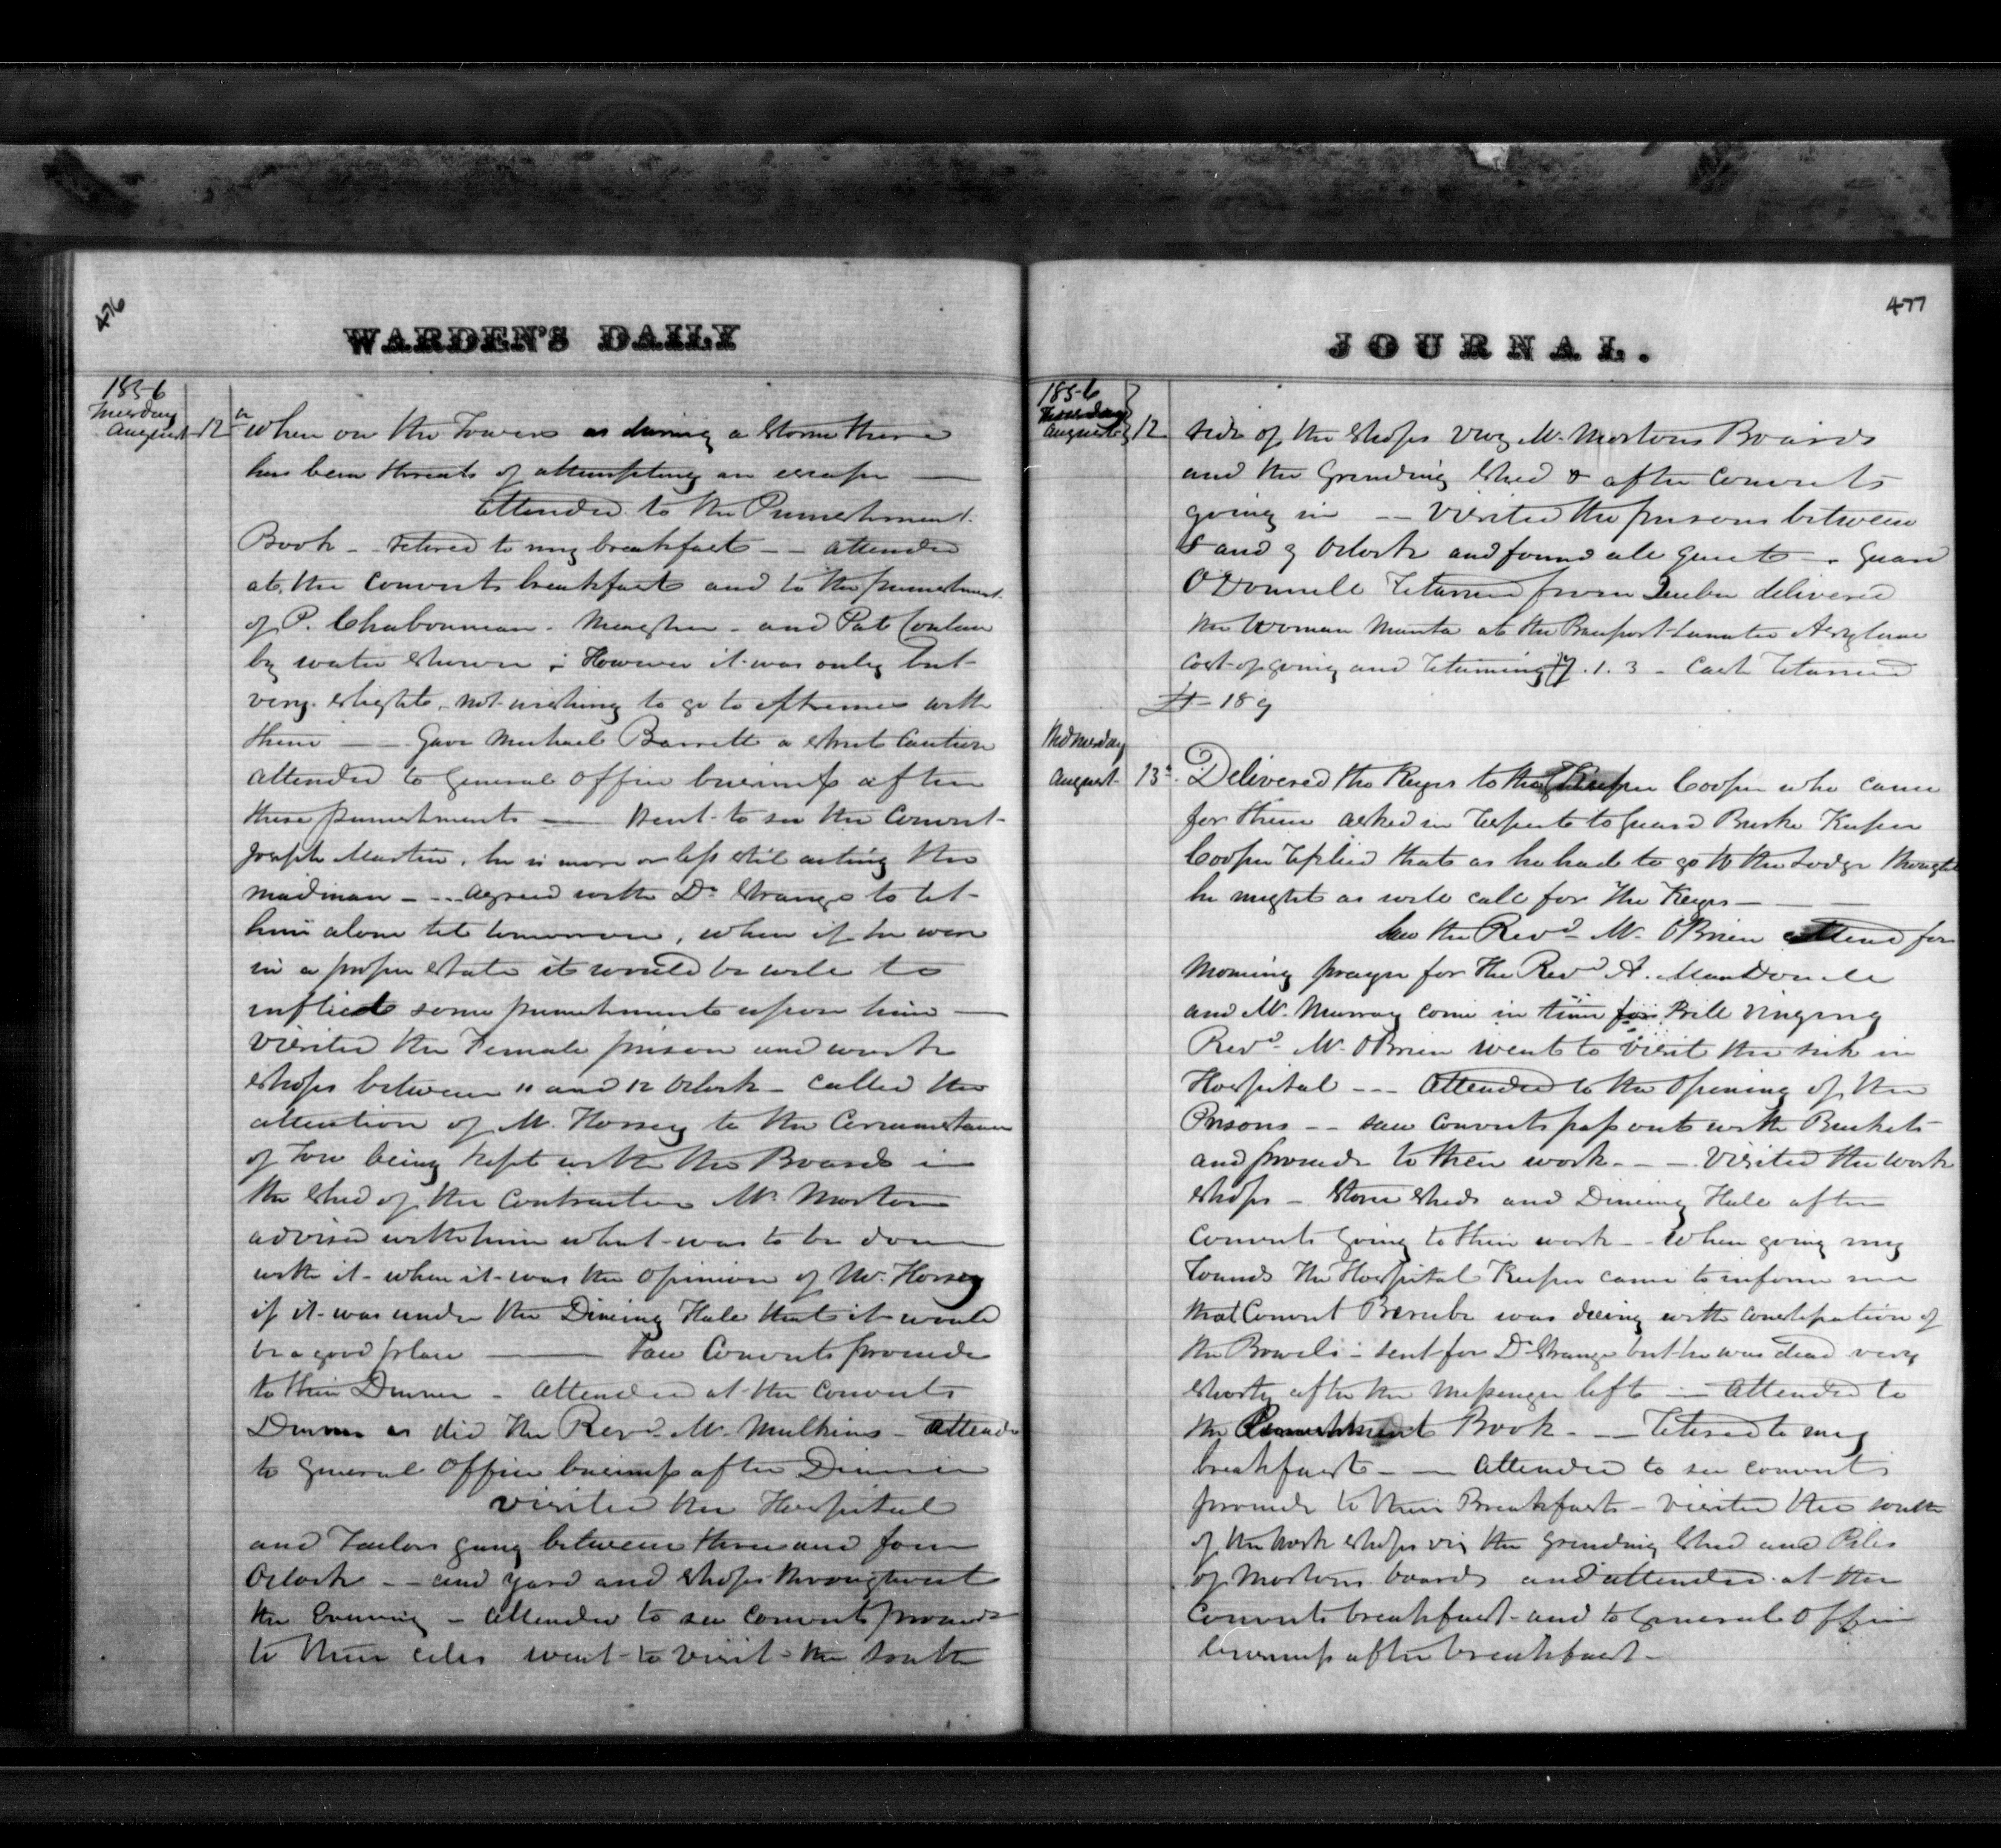 476
WARDEN'S DAILY
1856
Tuesday
August 12th When on the Towers as during a storm there
has been threats of attempting an escape —
Attended to the Punishment
Book — retired to my breakfast — attended
at the convicts breakfast and to the punishment
of P. Charbonneau - Meagher - and Pat Conlan
by water shower; However it was only but
very slight, not wishing to go to extremes with
them — Gave Michael Barrett a strict caution
attended to General Office business after
these punishments — Went to see the Convict
Joseph Martin, he is more or less still acting the
madman — agreed with Dr Strange to let
him alone till tomorrow, when if he were
in a proper state it would be well to
inflict some punishment upon him —
Visited the Female prison and work
shops between 11 and 12 Oclock — called the
attention of Mr. Horsey to the Circumstance
of Tow being kept with the Boards in
the shed of the Contractor Mr. Morton
advised with him what was to be done
with it - when it was the opinion of Mr. Horsey
if it was under the Dining Hall that it would
be a good place — Saw Convicts proceed
to their Dinner - attended at the convicts
Dinner as did the Revd. Mr. Mulkins - Attended
to General Office business after Dinner
visited the Hospital
and Tailors gang between three and four
Oclock — and yard and shops throughout
the Evening - attended to see Convicts proceed
to their cells went to visit the south
477
JOURNAL.
1856
Tuesday
August 12 side of the shops viz Mr. Mortons Boards
and the Grinding shed & after Convicts
going in — Visited the prisons between
8 and 9 Oclock and found all quiet — Guard
O'Donnell returned from Quebec delivered
the woman Manta at the Beauport Lunatic Asylum
cost of going and returning £7.1.3 - Cash returned
£1-18 9
Wednesday
August 13th. Delivered the Keys to the Keeper Cooper who came
for them asked in respect to Guard Burke Keeper
Cooper replied that as he had to go to the Lodge thought
he might as well call for the Keys —
Saw the Revd. Mr. OBrien attend for
morning prayer for the Revd A. MacDonell
and Mr. Murray come in time for Bell ringing
Revd. Mr. OBrien went to visit the sick in
Hospital — Attended to the opening of the
Prisons — saw Convicts pass out with Buckets
and proceed to their work — Visited the work
shops - stone sheds and Dining Hall after
Convicts going to their work — When going my
rounds the Hospital Keeper came to inform me
that Convict Berube was dieing with constipation of
the Bowels - sent for Dr Strange but he was dead very
shortly after the Messenger left — Attended to
the Punishment Book — retired to my
breakfast — Attended to see convicts
proceed to their Breakfast - visited the south
of the work shops viz the Grinding shed and Piles
of Mortons boards and attended at the
Convicts breakfast - and to General Office
business after breakfast -